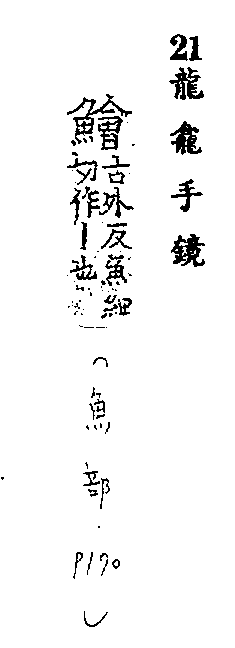 21龍龕手鏡
鱠古外反魚細
切作丨也
(魚部.P190)